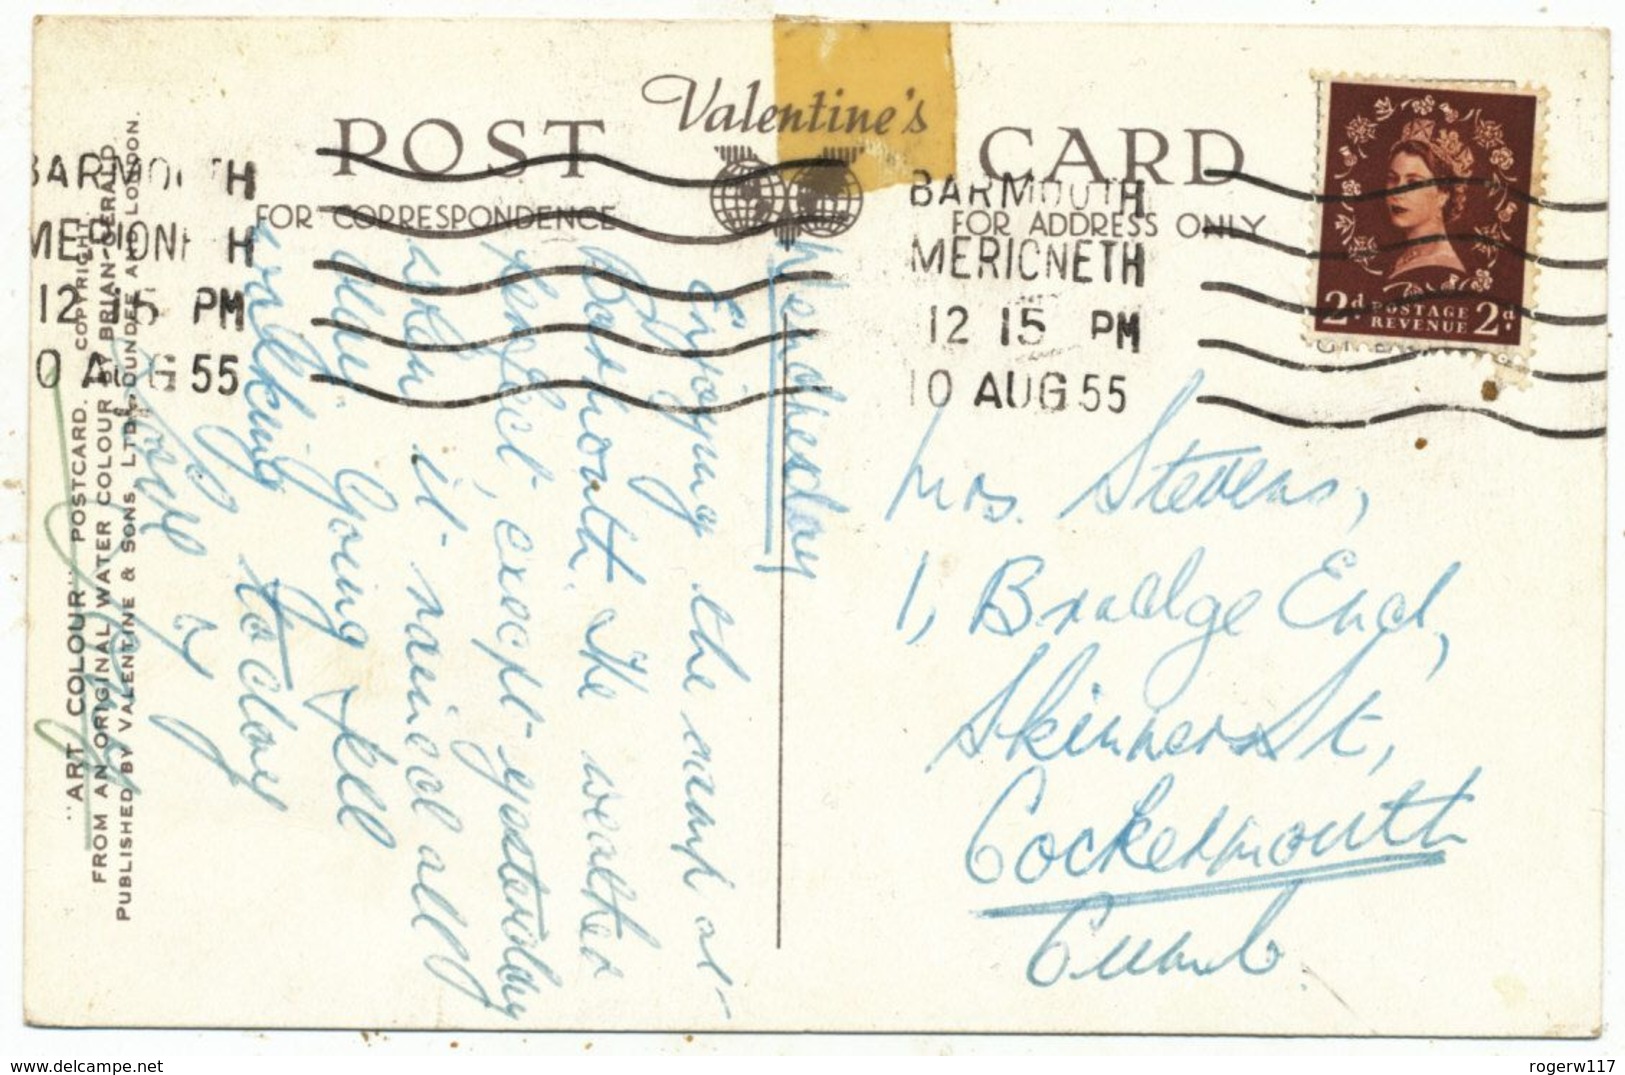 POST Valentine's CARD
FOR CORRESPONDENCE
FOR ADDRESS ONLY
BARMOUTH
MERIONETH
12 15 PM
10 AUG 55
BARMOUTH
MERIONETH
12 15 PM
10 AUG 55
2d POSTAGE 2d
REVENUE
"ART COLOUR" POSTCARD. COPYRIGHT
FROM AN ORIGINAL WATER COLOUR BY BRIAN GERALD.
PUBLISHED BY VALENTINE & SONS LTD. DUNDEE AND LONDON.
Wednesday
Enjoying the camp at
Barmouth. The weather
perfect, except yesterday
when it rained all
day. Going fell
walking today
Mrs. Stevens,
1, Bridge End,
Skinner St,
Cockermouth
Cumb.
www.delcampe.net
rogerw117